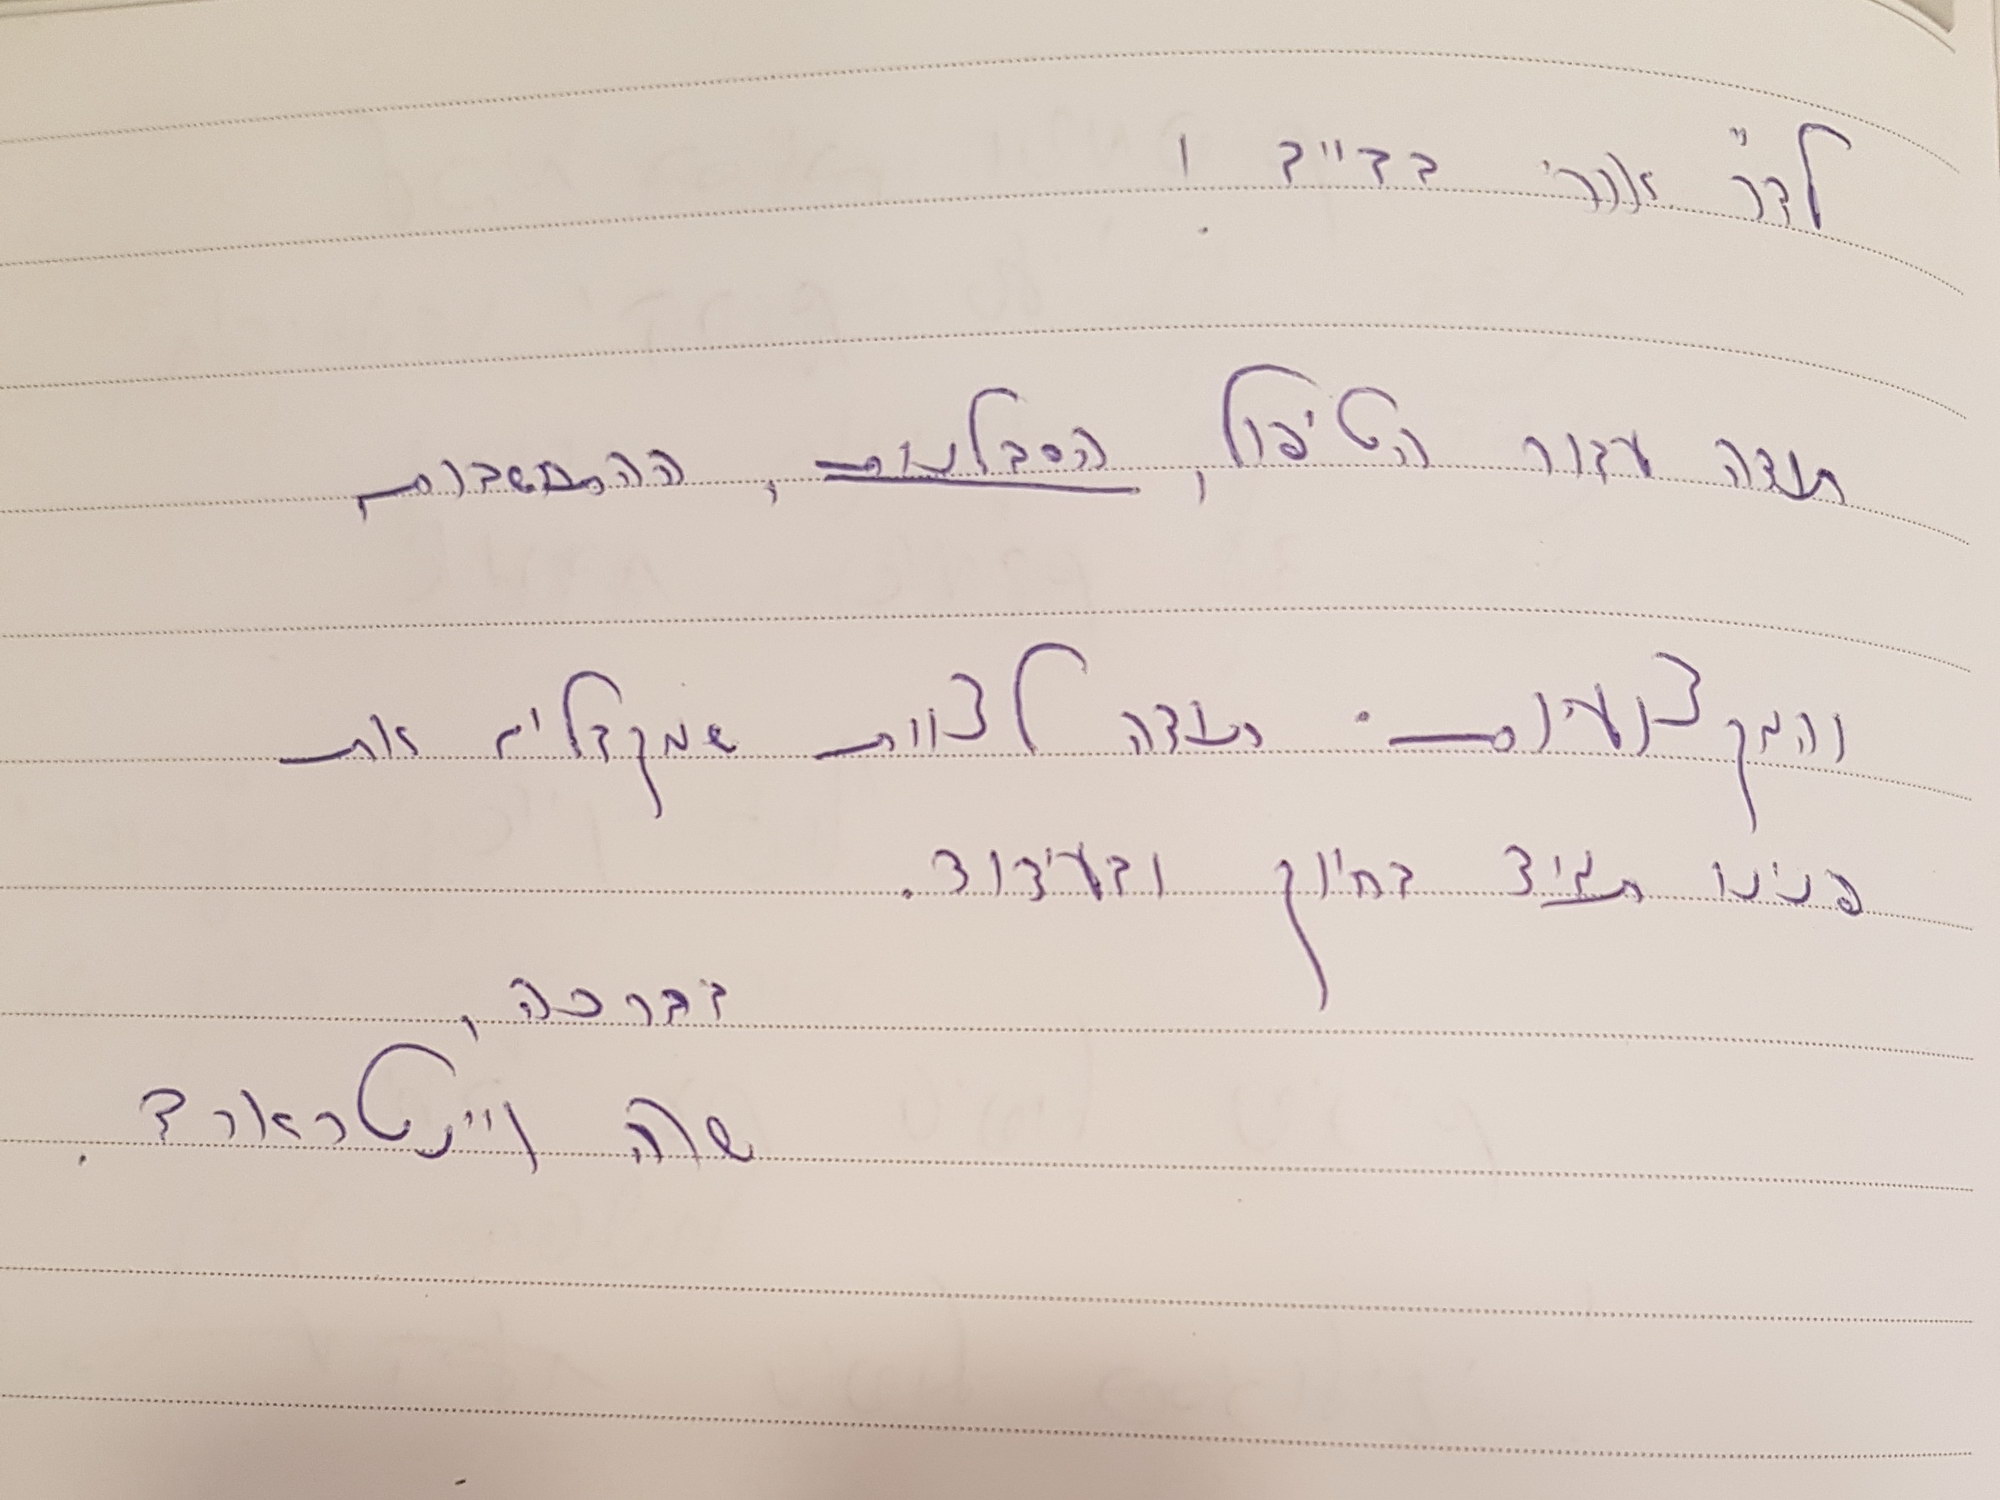 לד"ר אורי בדייב !
תודה עבור הטיפול, הסבלנות, ההתחשבות
והמקצועיות. תודה לצוות שמקבלים את
פנינו תמיד בחיוך ובעידוד.
בברכה,
שרה ויינטראוב.